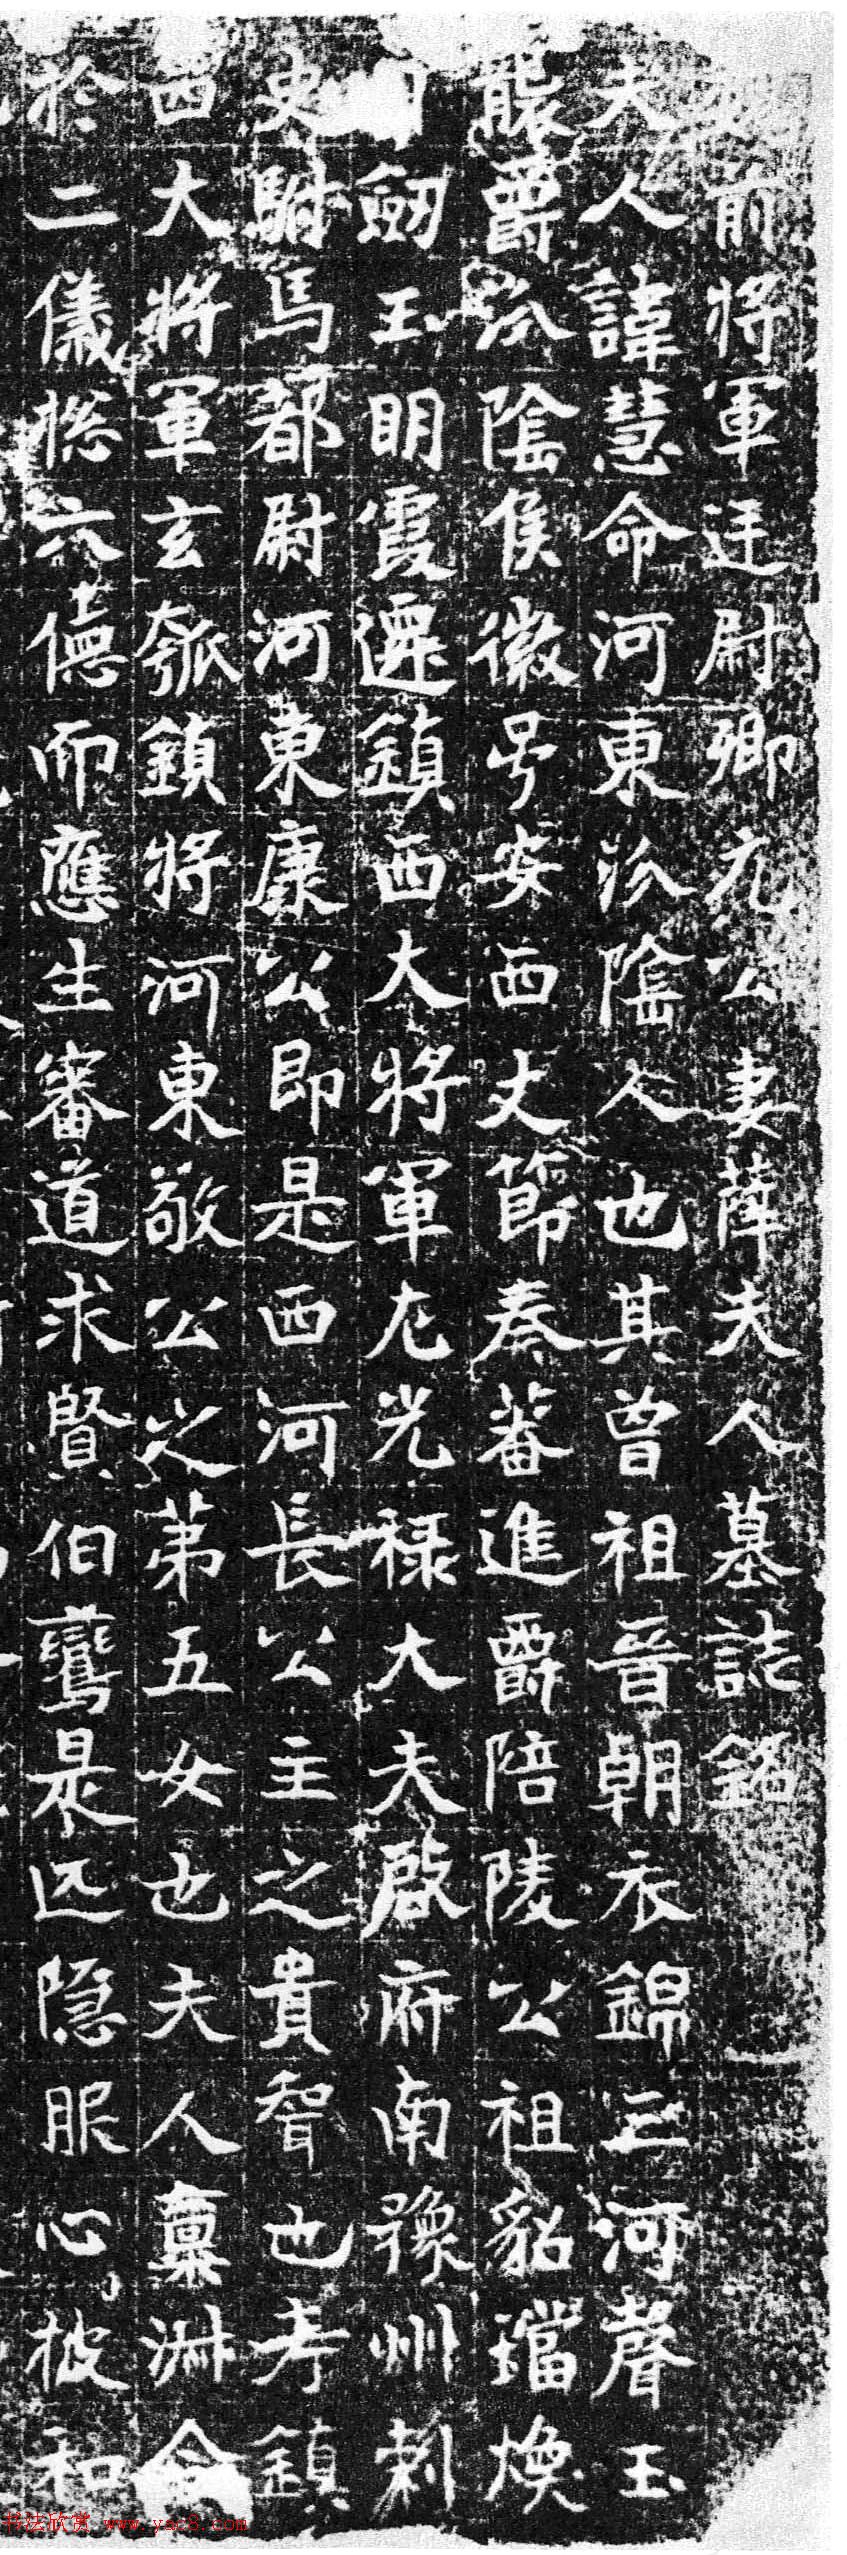 前將軍廷尉卿元公妻薛夫人墓誌銘
夫人諱慧命河東汾陰人也其曾祖晉朝衣錦三河聲玉
爵汾陰侯徽号安西丈節秦蕃進爵陪陵公祖貂璫煥
劒玉明霞遷鎮西大將軍左光祿大夫啟府南豫州刺
史駙馬都尉河東康公即是西河長公主之貴智也考鎮
四大將軍玄瓠鎮將河東敬公之第五女也夫人稟淋令
於二儀惣六德而應生審道求賢伯鸞是匹隐服心披和
书法欣赏 www.yac8.com